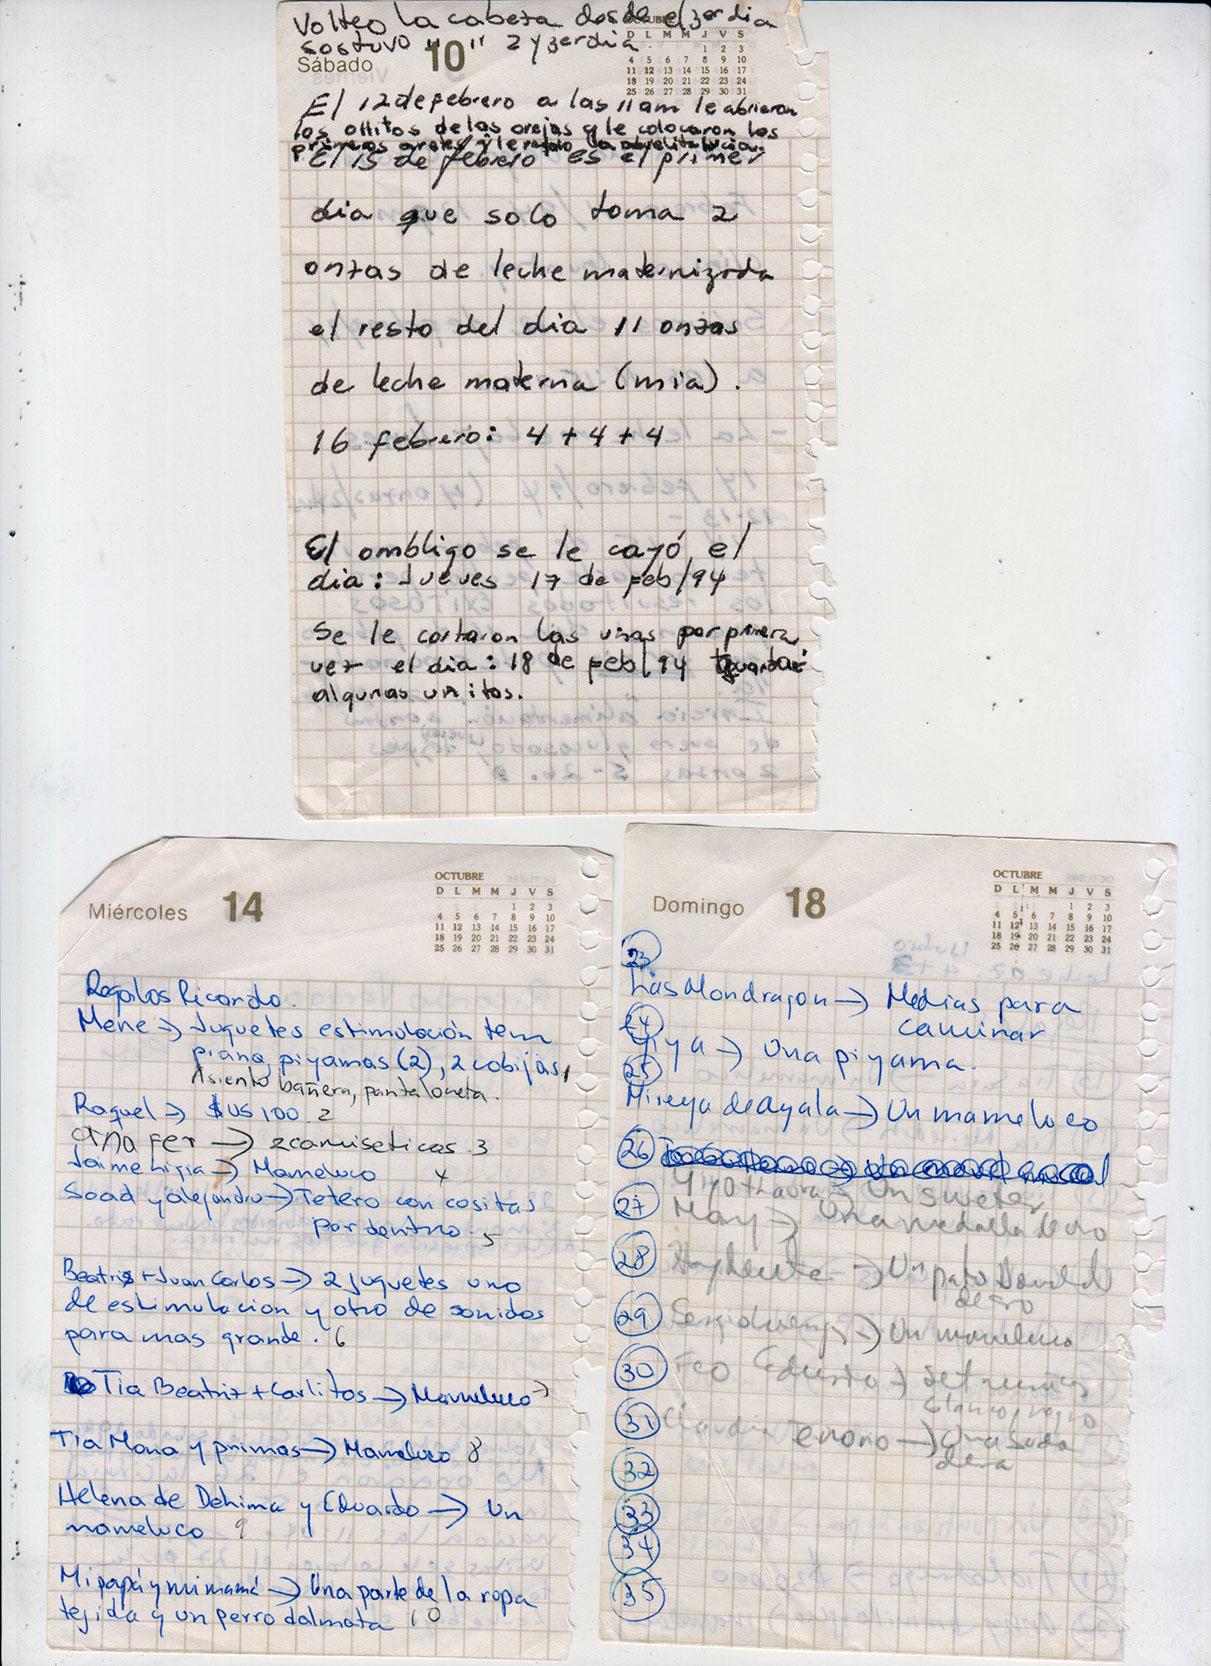 Volteo la cabeza desde el 3er dia
sostuvo " " 2 y 3er dia
Sábado 10
OCTUBRE
D L M M J V S
1 2 3
4 5 6 7 8 9 10
11 12 13 14 15 16 17
18 19 20 21 22 23 24
25 26 27 28 29 30 31
El 12 de febrero a las 11 am le abrieron
los ollitos de las orejas y le colocaron los
primeros aretes y le regalo la abuelita Lucia.
El 15 de febrero es el primer
dia que solo toma 2
onzas de leche maternizada
el resto del dia 11 onzas
de leche materna (mia).
16 febrero: 4 + 4 + 4
El ombligo se le cayó el
dia: Jueves 17 de Feb/94
Se le cortaron las uñas por primera
vez el dia: 18 de Feb/94 guardar
algunas uñitas.
Miércoles 14
OCTUBRE
D L M M J V S
1 2 3
4 5 6 7 8 9 10
11 12 13 14 15 16 17
18 19 20 21 22 23 24
25 26 27 28 29 30 31
Regalos Ricardo.
Mene → Juguetes estimulación tem
piano, piyamas (2), 2 cobijas, 1
Asiento bañera, pantaloneta.
Raquel → $US 100. 2
Ana Fer → 2 camiseticas. 3
Jaime Ligia → Mameluco 4
Soad y Alejandro → Tetero con cositas
por dentro. 5
Beatriz + Juan Carlos → 2 juguetes uno
de estimulacion y otro de sonidos
para mas grande. 6
Tia Beatriz + Carlitos → Mameluco 7
Tia Mona y primas → Mameluco 8
Helena de Dehima y Eduardo → Un
mameluco 9
Mi papá y mi mamá → Una parte de la ropa
tejida y un perro dalmata 10
Domingo 18
OCTUBRE
D L M M J V S
1 2 3
4 5 6 7 8 9 10
11 12 13 14 15 16 17
18 19 20 21 22 23 24
25 26 27 28 29 30 31
23
Las Mondragon → Medias para
caminar
24
Yiya → Una piyama.
25
Mireya de Ayala → Un mameluco
26
Yiyo + Laura → Un sueter
27 May → Una medalla de oro
28 → Un pato Donald
de oro
29 → Un mameluco
30 Fco Eduardo → Set
blanco, rojo
31 Claudia Tenorio → Una suda
dera
32
33
34
35